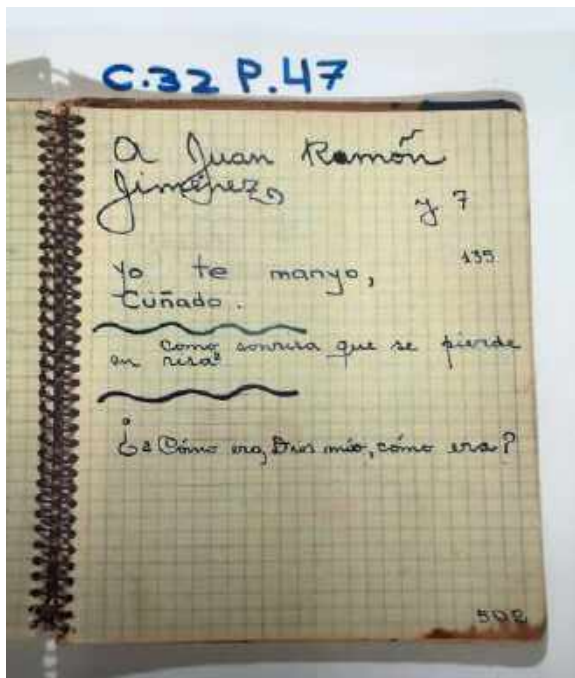 C.32 P.47
A Juan Ramón
Jiménez
y 7
135
Yo te manyo,
Cuñado.
como sonrisa que se pierde
en risa"
¿a Cómo era, Dios mío, cómo era?
502